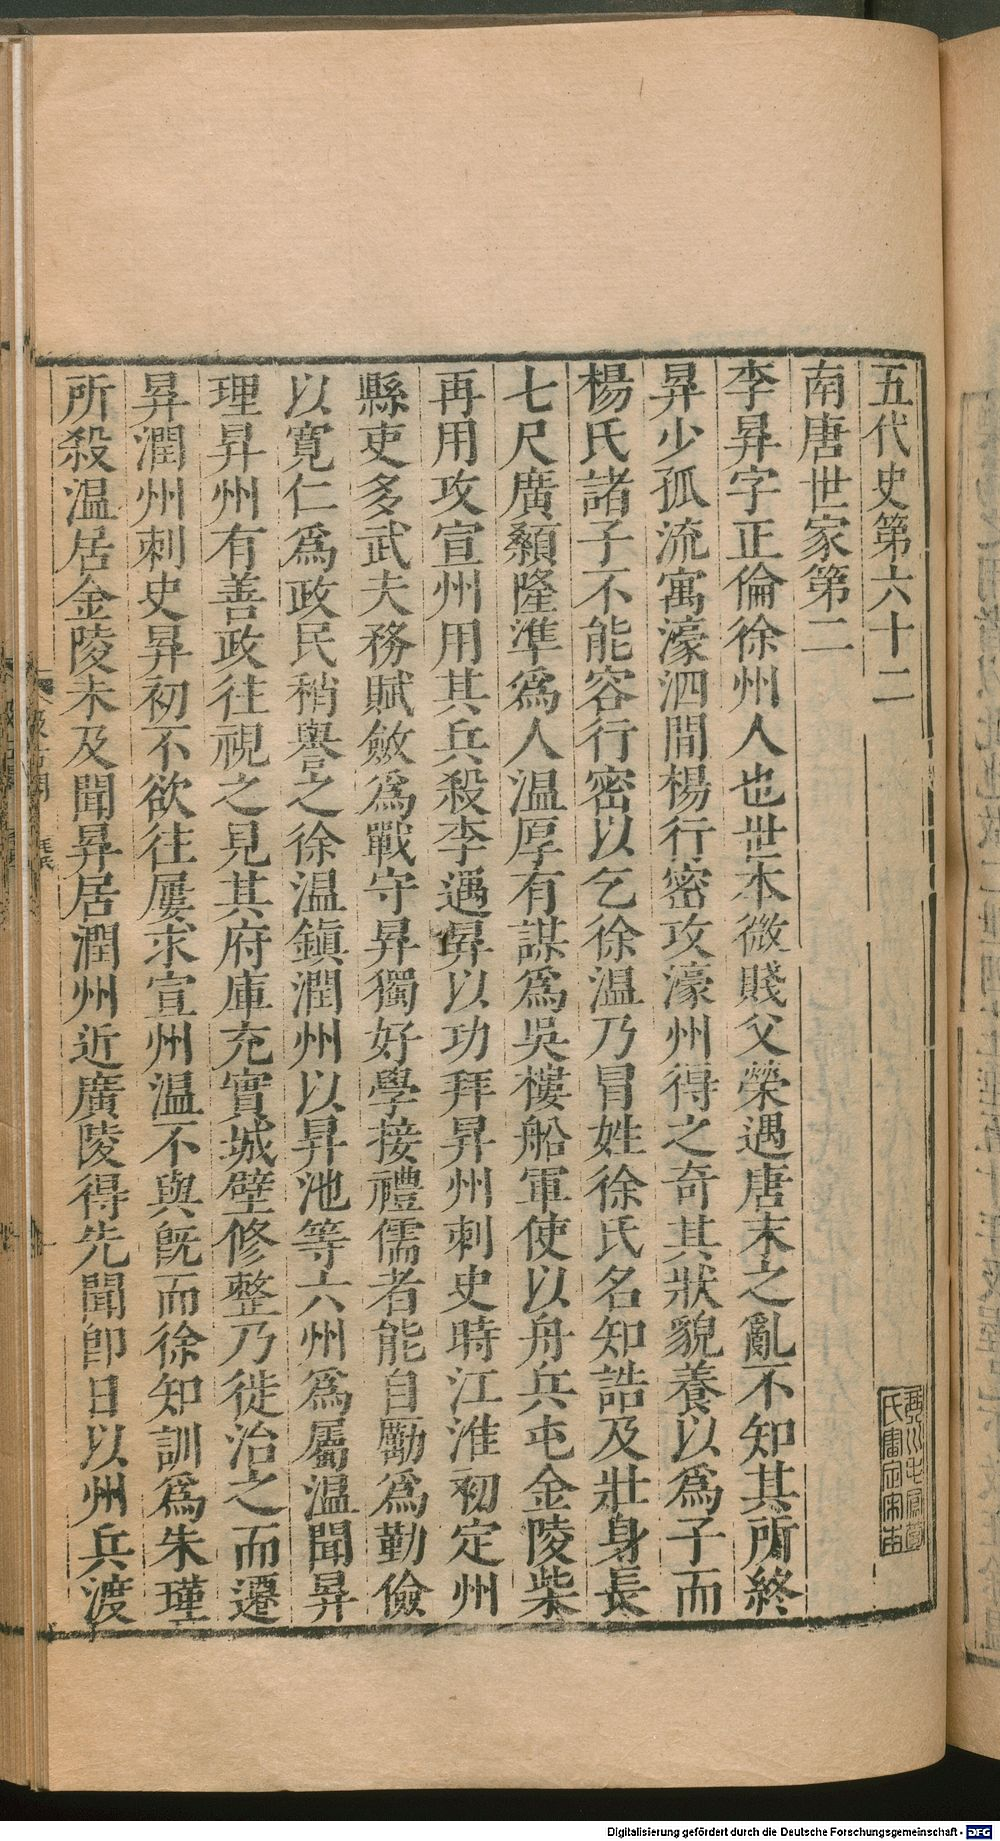 五代史第六十二
南唐世家第二
李昪字正倫徐州人也世本微賤父榮遇唐末之亂不知其所終
昪少孤流寓濠泗間楊行密攻濠州得之奇其狀貌養以爲子而
楊氏諸子不能容行密以乞徐温乃冒姓徐氏名知誥及壯身長
七尺廣顙隆準爲人温厚有謀爲吳樓船軍使以舟兵屯金陵柴
再用攻宣州用其兵殺李遇昪以功拜昇州刺史時江淮初定州
縣吏多武夫務賦斂爲戰守昪獨好學接禮儒者能自勵爲勤儉
以寛仁爲政民稍譽之徐温鎮潤州以昇池等六州爲屬温聞昪
理昇州有善政往視之見其府庫充實城壁修整乃徙治之而遷
昪潤州刺史昪初不欲往屢求宣州温不與旣而徐知訓爲朱瑾
所殺温居金陵未及聞昪居潤州近廣陵得先聞卽日以州兵渡
Digitalisierung gefördert durch die Deutsche Forschungsgemeinschaft - DFG